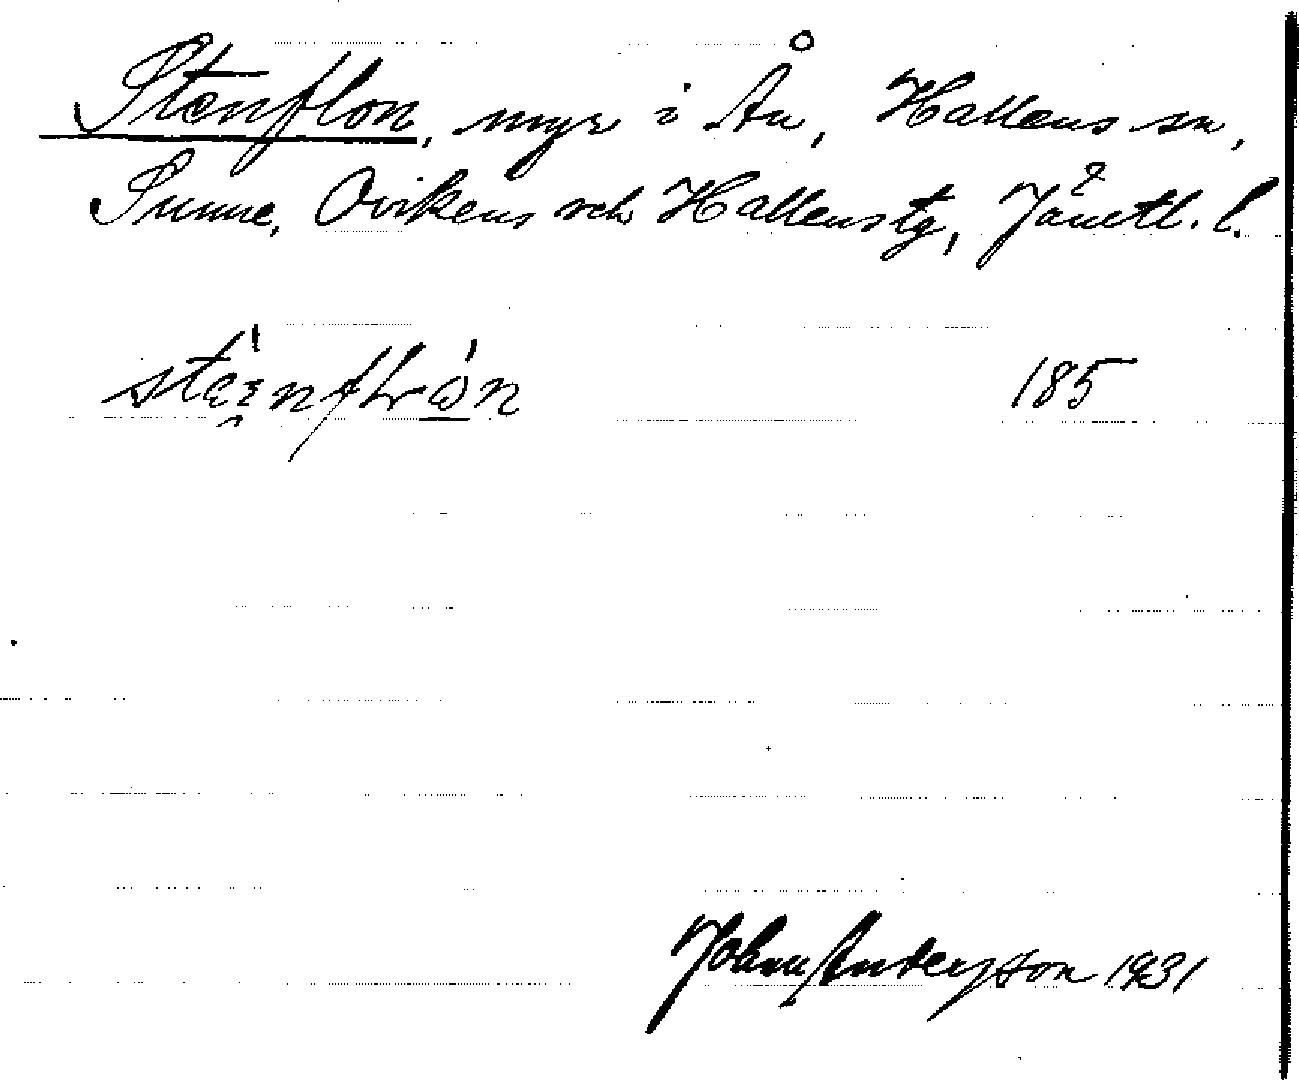 Stenflon, myr i Ån, Hallens sn,
Sunne, Ovikens och Hallens tg, Jämtl. l.
185
John Andersson 1931